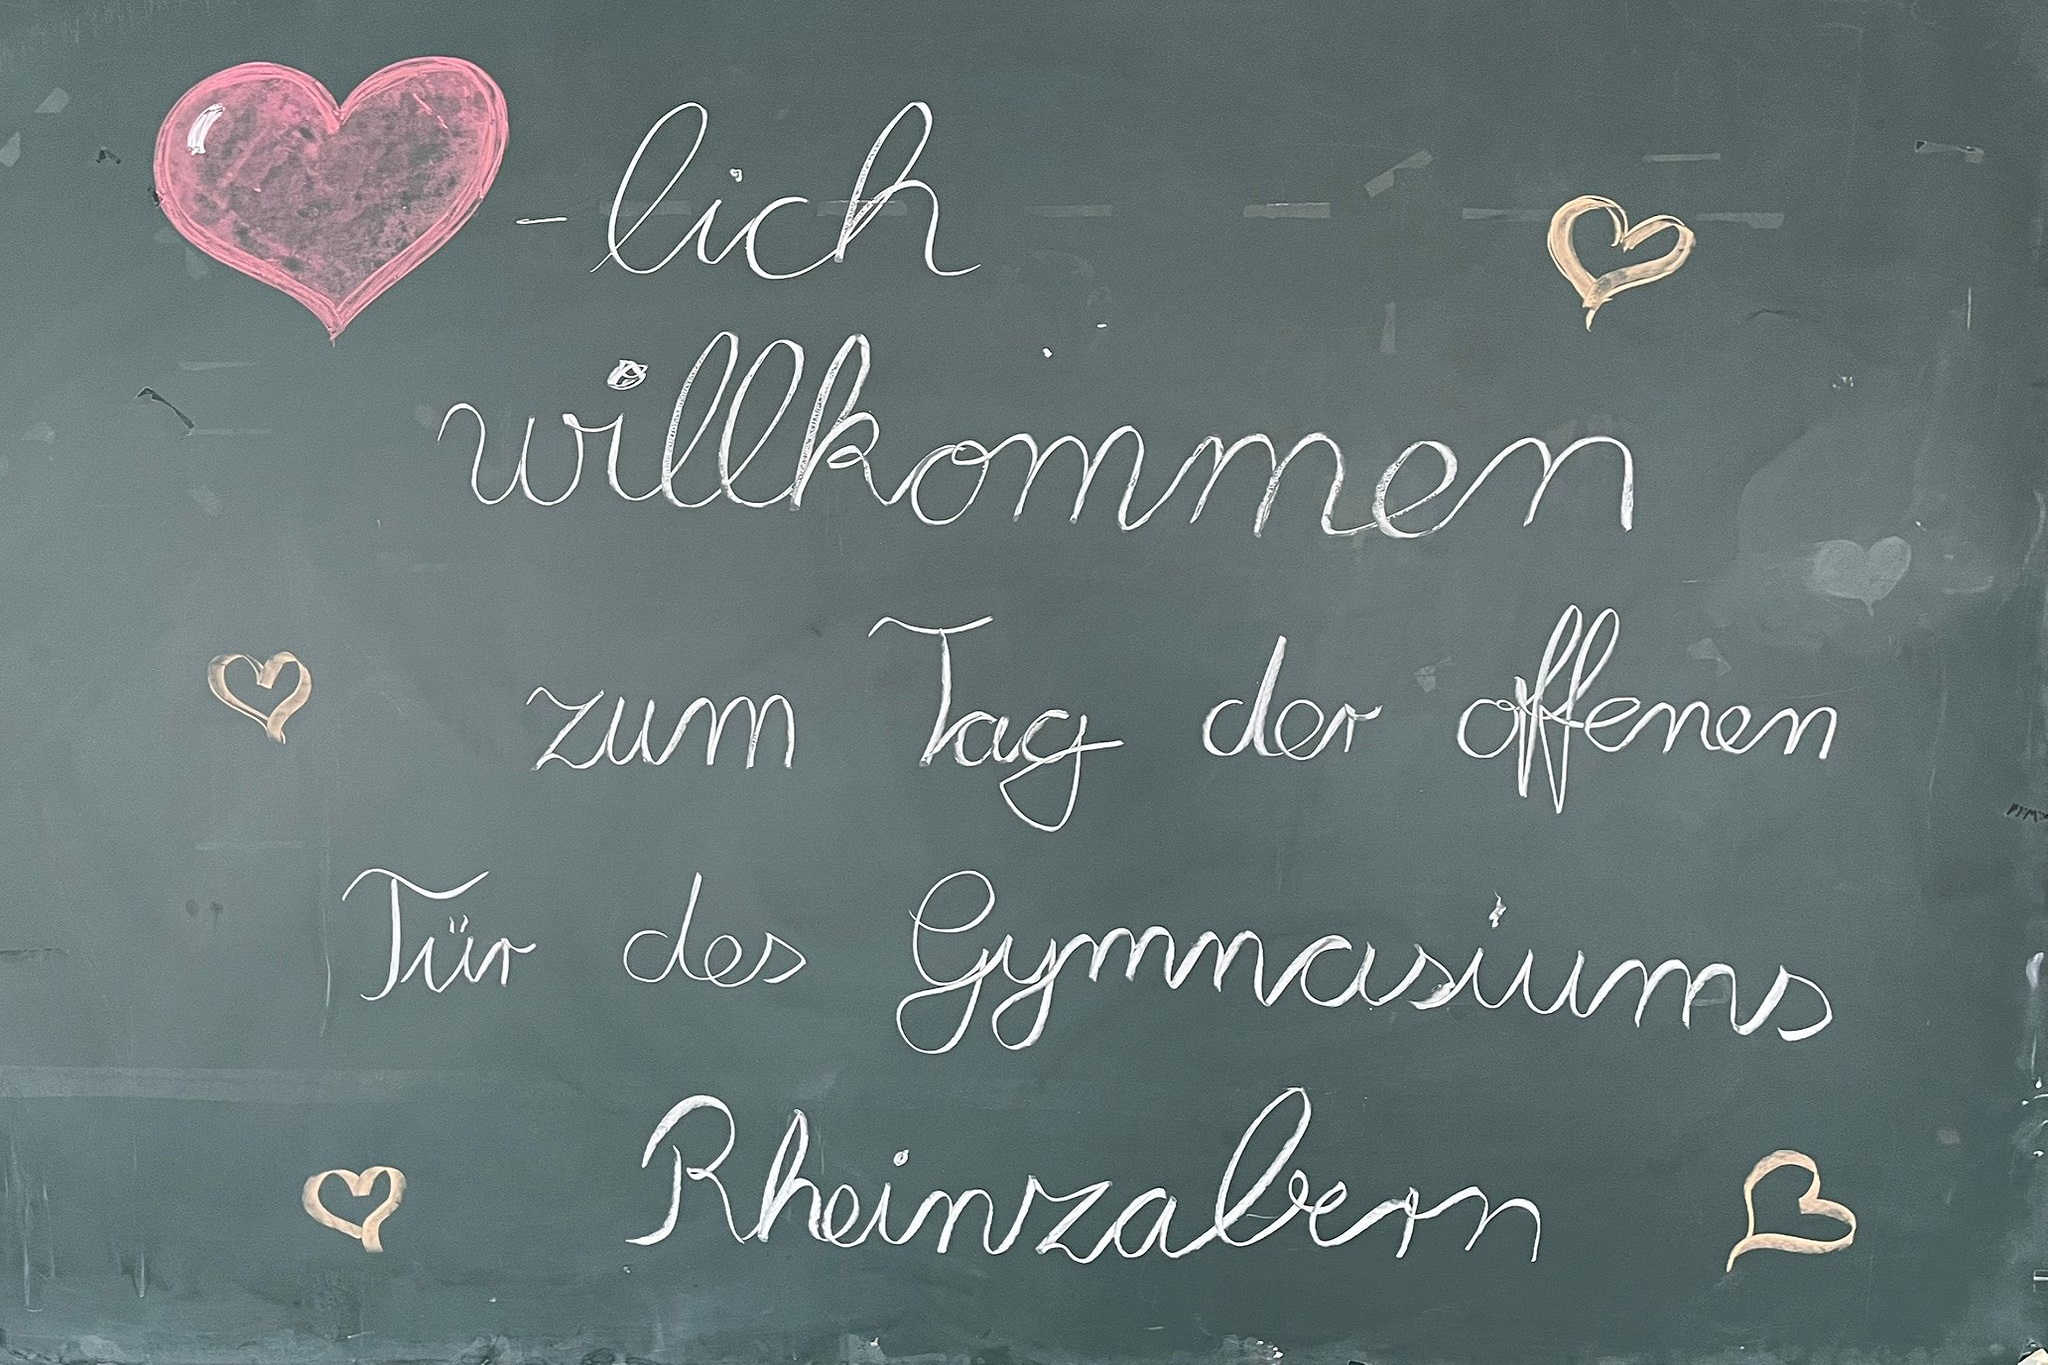 -lich
willkommen
zum Tag der offenen
Tür des Gymnasiums
Rheinzabern